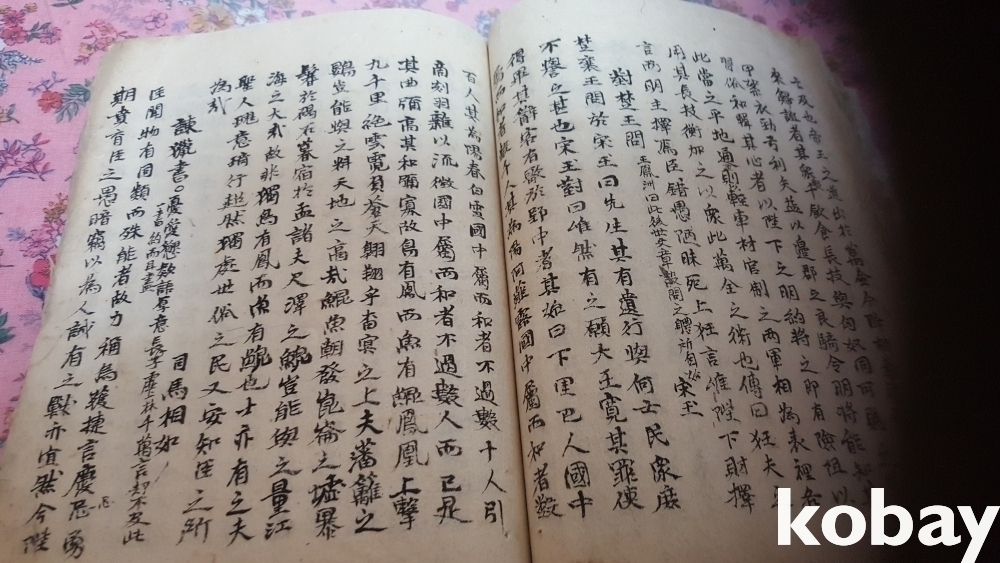 士及也帝王之道出於萬全今降胡
來歸誼者其衆數千飮食長技與匈奴同可賜
甲絮衣勁弓利矢益以邊郡之良騎令明將能知其
習俗和輯其心者以陛下之明約將之即有險阻以
此當之平地通則輕車材官制之兩軍相爲表裡各
用其長技衡加之以衆此萬全之術也傳曰狂夫之
言而明主擇焉臣錯愚陋昧死上狂言惟陛下財擇
對楚王問 王鳳洲曰此後世文章設問之體所自始 宋玉
楚襄王問於宋玉曰先生其有遺行與何士民衆庶
不譽之甚也宋玉對曰唯然有之願大王寬其罪使
得畢其辭客有歌於郢中者其始曰下里巴人國中
屬而和者數千人其爲陽阿薤露國中屬而和者數
百人其爲陽春白雪國中屬而和者不過數十人引
商刻羽雜以流徵國中屬而和者不過數人而已是
其曲彌高其和彌寡故鳥有鳳而魚有鯤鳳凰上擊
九千里絶雲霓負蒼天翺翔乎杳冥之上夫藩籬之
鷃豈能與之料天地之高哉鯤魚朝發崑崙之墟暴
鬐於碣石暮宿於孟諸夫尺澤之鯢豈能與之量江
海之大哉故非獨鳥有鳳而魚有鯤也士亦有之夫
聖人瑰意琦行超然獨處世俗之民又安知臣之所
爲哉
諫獵書。憂愛懇款語尊意長子虛林千萬言却不及此一書約而且盡
司馬相如
臣聞物有同類而殊能者故力稱烏獲捷言慶忌勇
期賁育臣之愚暗竊以爲人誠有之獸亦宜然今陛
kobay